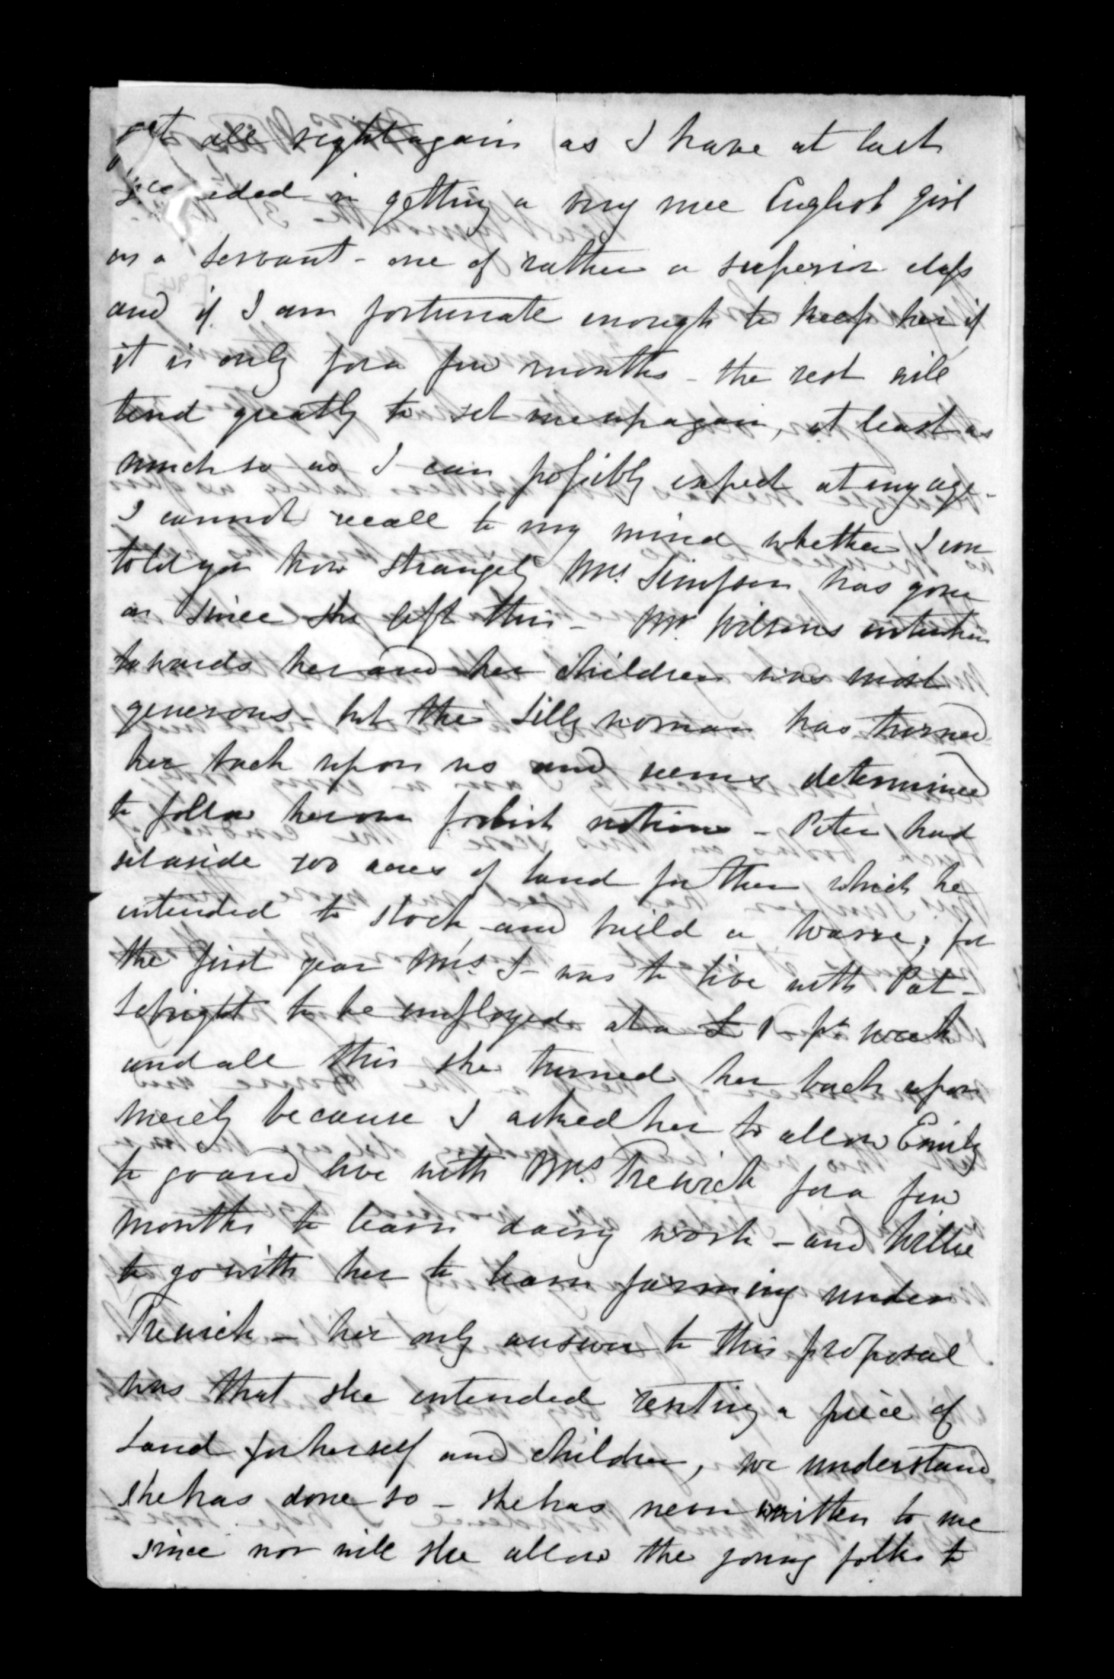 get all right again as I have at last
succeeded in getting a very nice English girl
as a servant - one of rather a superior class
and if I am fortunate enough to keep her if
it is only for a few months - the rest will
tend greatly to set me up again, at least as
much so as I can possibly expect at my age -
I cannot recall to my mind whether I
told you how strangely Mrs. Simpson has gone
on since she left this - Mr. Wilsons intention
towards her and her children was most
generous - but the silly woman has turned
her back upon us and seems determined
to follow her own foolish notions - Peter had
set aside 700 acres of land for them which he
intended to stock and build a house; for
the first year Mrs. S - was to live with Pat -
Sebright to be employed at a £1 - pr week
and all this she turned her back upon
merely because I asked her to allow Emily
to go and live with Mrs. Trewick for a few
months to learn dairy work - and Willie
to go with her to learn farming under
Trewick - her only answer to this proposal
was that she intended renting a piece of
Land for herself and children, we understand
she has done so - she has never written to me
since nor will she allow the young folks to